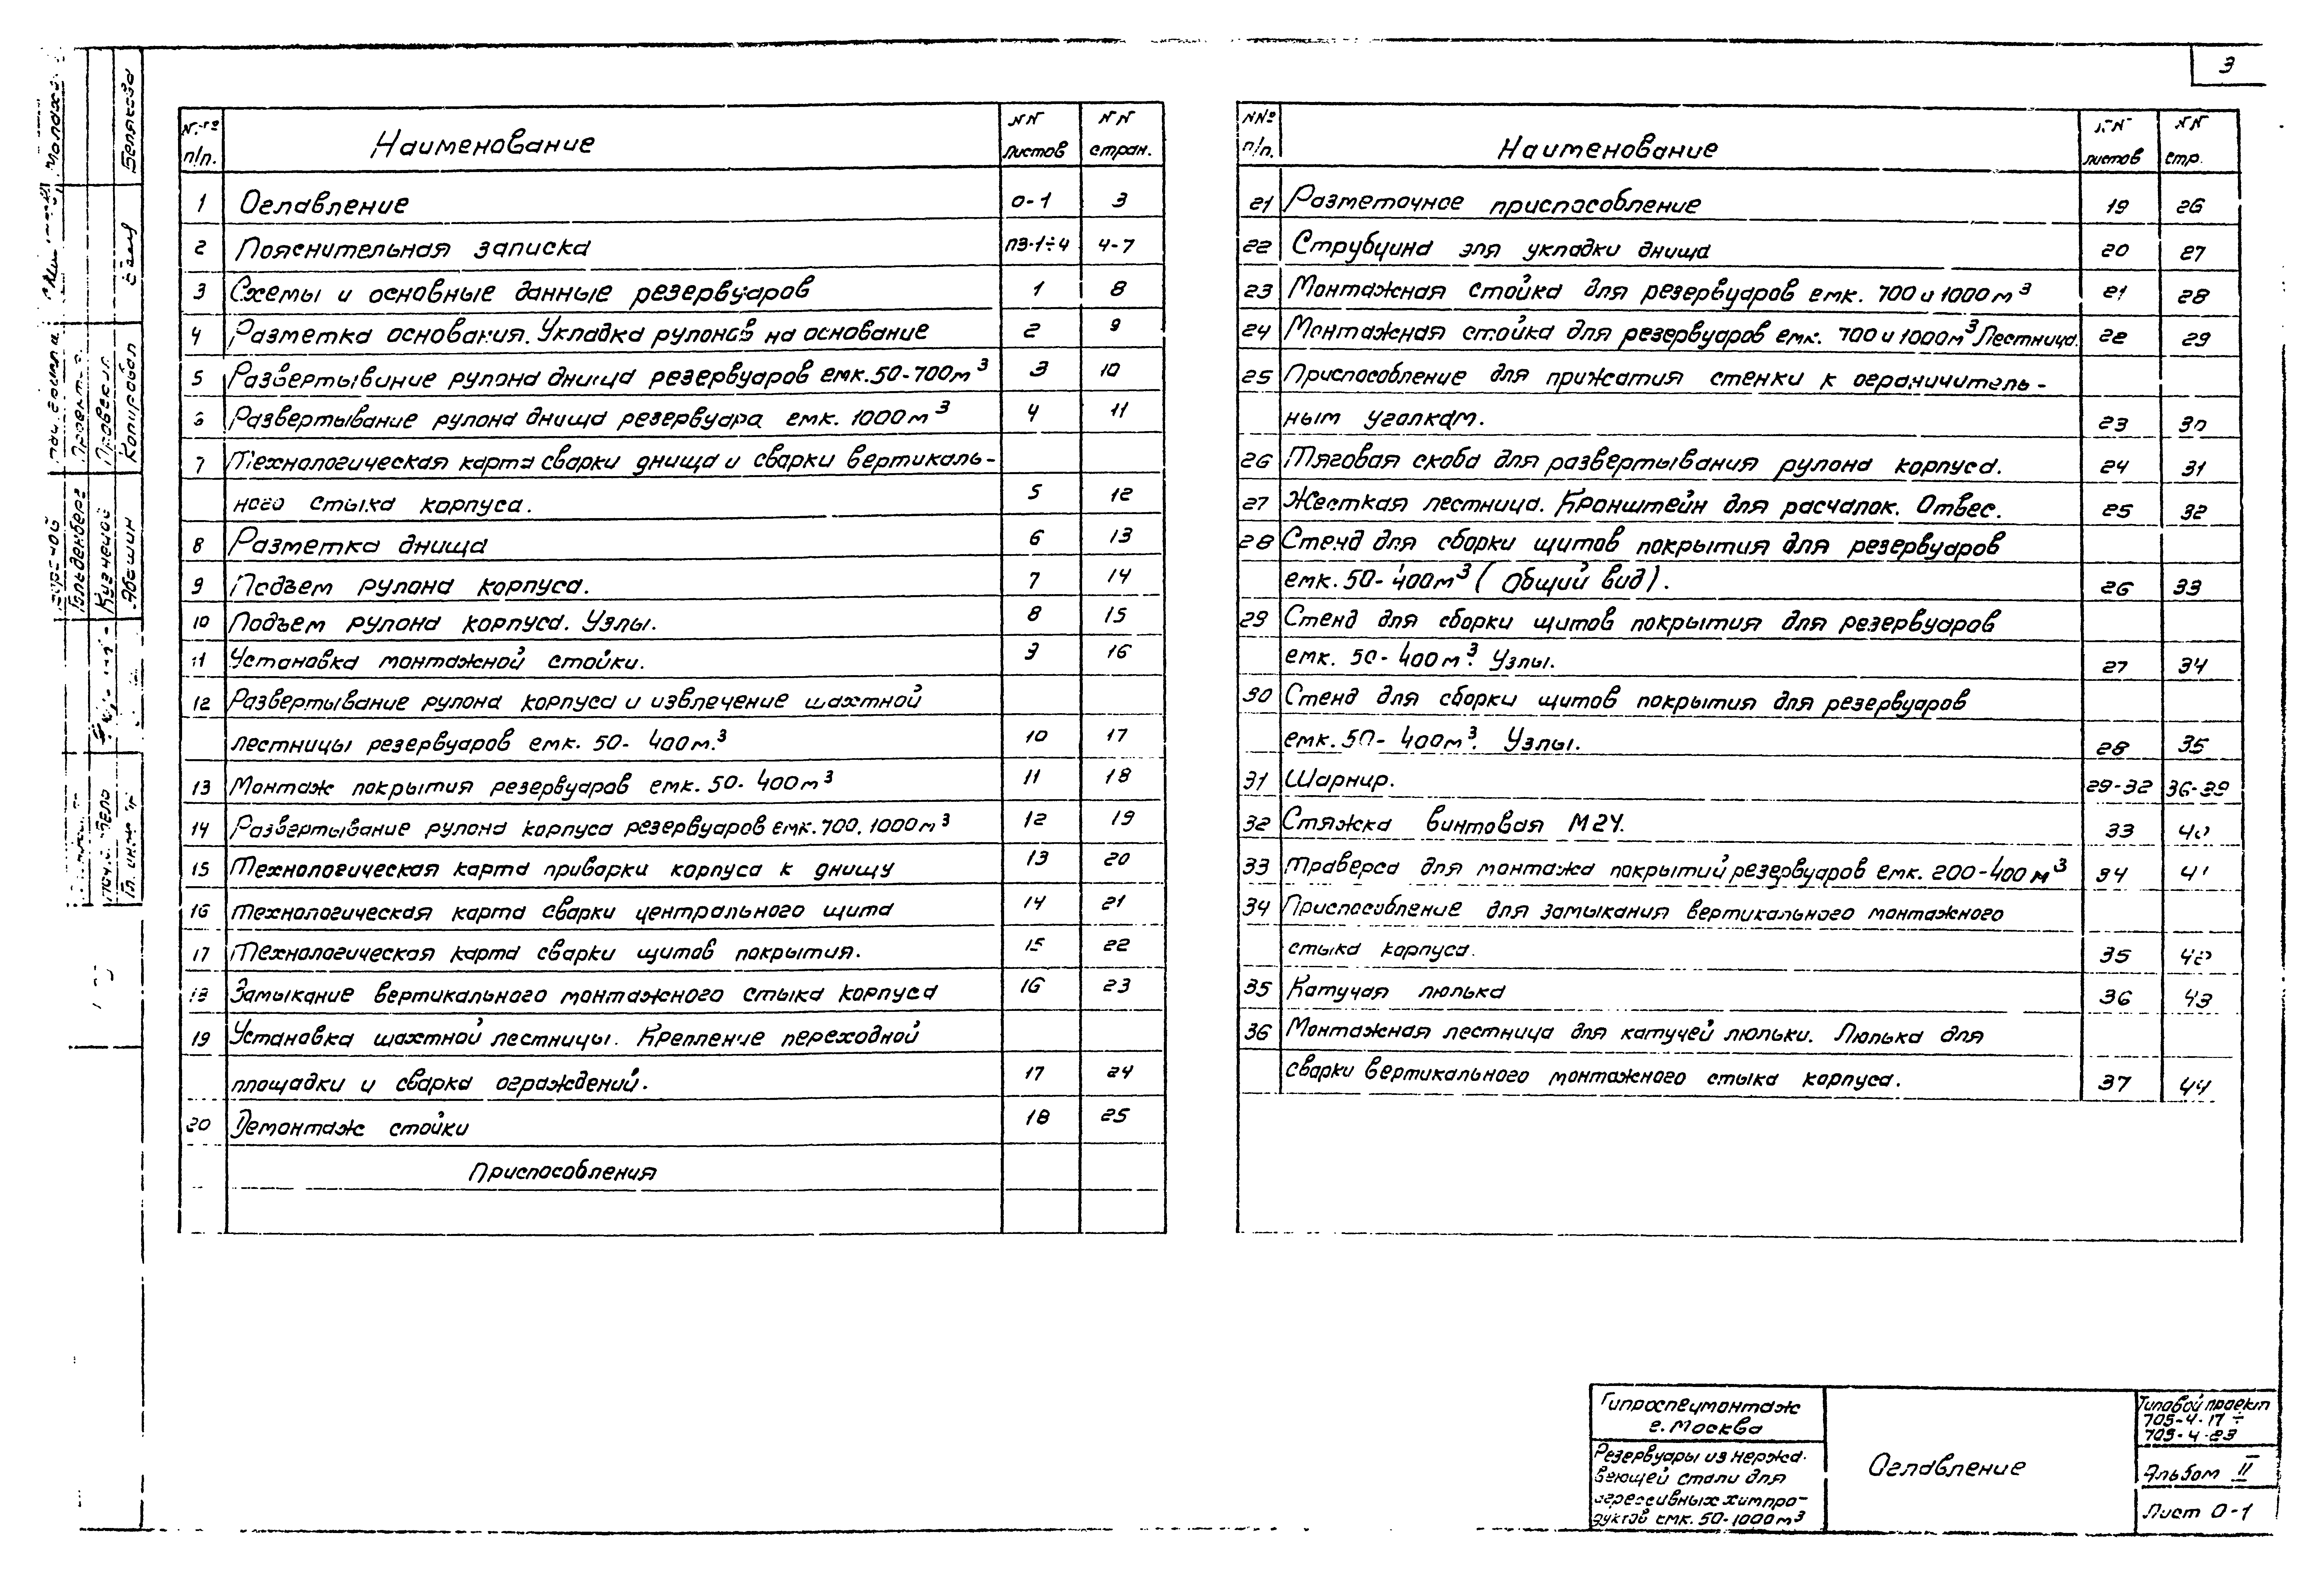 3
№№ п/п. Наименование NN листов NN стран.
1 Оглавление 0-1 3
2 Пояснительная записка ПЗ-1÷4 4-7
3 Схемы и основные данные резервуаров 1 8
4 Разметка основания. Укладка рулонов на основание 2 9
5 Развертывание рулона днища резервуаров емк. 50-700м³ 3 10
6 Развертывание рулона днища резервуара емк. 1000м³ 4 11
7 Технологическая карта сварки днища и сварки вертикаль-
ного стыка корпуса. 5 12
8 Разметка днища 6 13
9 Подъем рулона корпуса. 7 14
10 Подъем рулона корпуса. Узлы. 8 15
11 Установка монтажной стойки. 9 16
12 Развертывание рулона корпуса и извлечение шахтной
лестницы резервуаров емк. 50-400м.³ 10 17
13 Монтаж покрытия резервуаров емк. 50-400м³ 11 18
14 Развертывание рулона корпуса резервуаров емк. 700, 1000м³ 12 19
15 Технологическая карта приварки корпуса к днищу 13 20
16 Технологическая карта сварки центрального щита 14 21
17 Технологическая карта сварки щитов покрытия. 15 22
18 Замыкание вертикального монтажного стыка корпуса 16 23
19 Установка шахтной лестницы. Крепление переходной
площадки и сварка ограждений. 17 24
20 Демонтаж стойки 18 25
Приспособления
№№ п/п. Наименование NN листов NN стр.
21 Разметочное приспособление 19 26
22 Струбцина для укладки днища 20 27
23 Монтажная стойка для резервуаров емк. 700 и 1000м³ 21 28
24 Монтажная стойка для резервуаров емк. 700 и 1000м³ Лестница. 22 29
25 Приспособление для прижатия стенки к ограничитель-
ным уголкам. 23 30
26 Тяговая скоба для развертывания рулона корпуса. 24 31
27 Жесткая лестница. Кронштейн для расчалок. Отвес. 25 32
28 Стенд для сборки щитов покрытия для резервуаров
емк. 50-400м³ (Общий вид). 26 33
29 Стенд для сборки щитов покрытия для резервуаров
емк. 50-400м³. Узлы. 27 34
30 Стенд для сборки щитов покрытия для резервуаров
емк. 50-400м³. Узлы. 28 35
31 Шарнир. 29-32 36-39
32 Стяжка винтовая М24. 33 40
33 Траверса для монтажа покрытий резервуаров емк. 200-400м³ 34 41
34 Приспособление для замыкания вертикального монтажного
стыка корпуса. 35 42
35 Катучая люлька 36 43
36 Монтажная лестница для катучей люльки. Люлька для
сварки вертикального монтажного стыка корпуса. 37 44
Гипроспецмонтаж
г. Москва
Резервуары из нержа-
веющей стали для
агрессивных химпро-
дуктов емк. 50-1000м³
Оглавление
Типовой проект
705-4-17 ÷
705-4-23
Альбом II
Лист 0-1
Белякова
Копировал
Гольденберг
Кузнецов
Авашин